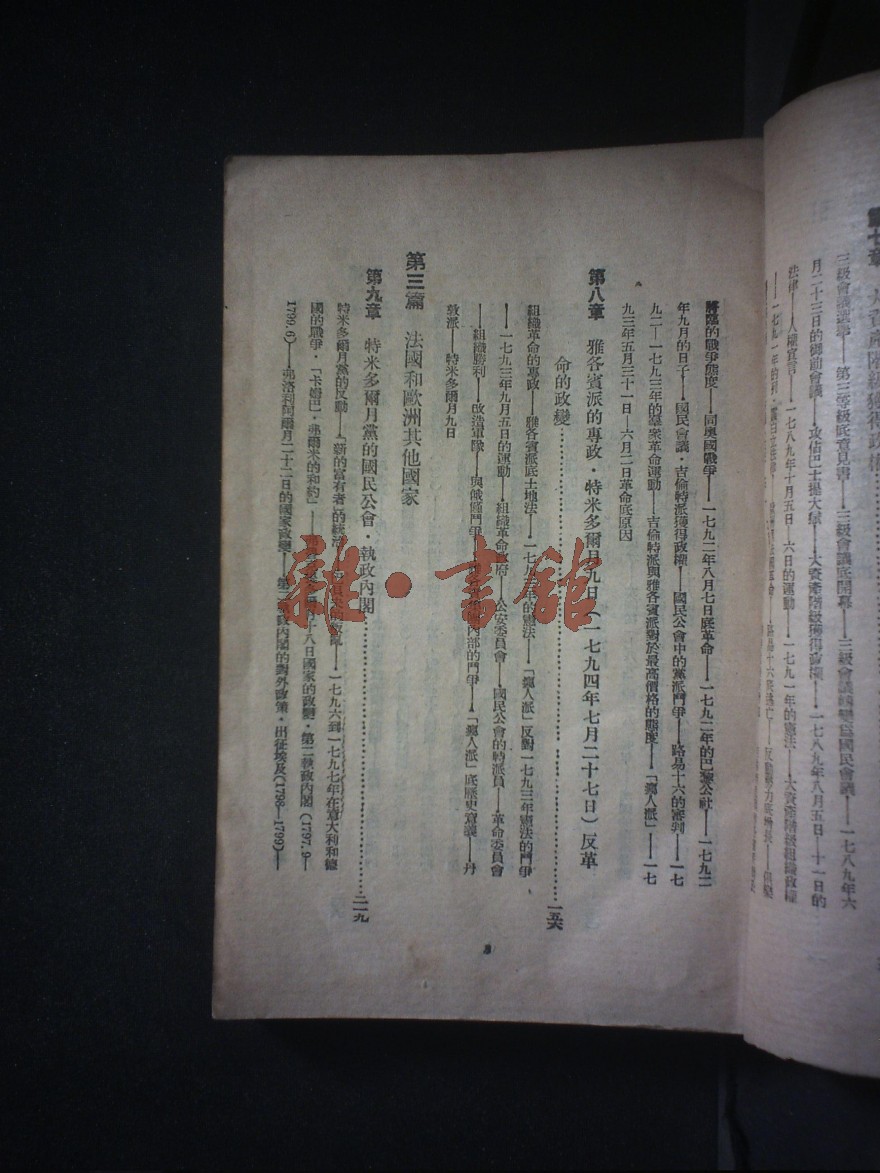 三級會議選舉——第三等級底意見書——三級會議底開幕——三級會議轉變爲國民會議——一七八九年六
月二十三日的御前會議・攻佔巴士提大獄——大資產階級獲得政權——一七八九年八月五日—十一日的
法律——人權宣言——一七八九年十月五日—六日的運動——一七九一年的憲法——大資產階級組織政權
將臨的戰爭態度——同奧國戰爭——一七九二年八月七日底革命——一七九二年的巴黎公社——一七九二
年九月的日子——國民會議・吉倫特派獲得政權——國民公會中的黨派鬥爭——路易十六的審判——一七
九二—一七九三年的羣衆革命運動——吉倫特派與雅各賓派對於最高價格的態度——「瘋人派」——一七
九三年五月三十一日—六月二日革命底原因
第八章 雅各賓派的專政・特米多爾月九日（一七九四年七月二十七日）反革
命的政變……一五六
組織革命的專政——雅各賓派底土地法——一七九三年的憲法——「瘋人派」反對一七九三年憲法的鬥爭
——一七九三年九月五日的運動——組織革命政府——公安委員會——國民公會的特派員——革命委員會
——組織勝利——改造軍隊——與饑饉鬥爭——內部的鬥爭——「瘋人派」底歷史意義——丹
敦派——特米多爾月九日
第三篇 法國和歐洲其他國家
第九章 特米多爾月黨的國民公會・執政內閣……二一九
特米多爾月黨的反動——「新的富有者」的統治——一七九六到一七九七年在意大利和德
國的戰爭・「卡姆巴・弗爾米的和約」——十八日國家的政變・第二執政內閣（1797.9—
1799.6）——弗洛利阿爾月二十二日的國家政變——第二執政內閣的對外政策・出征埃及（1798—1799）——
雜・書館